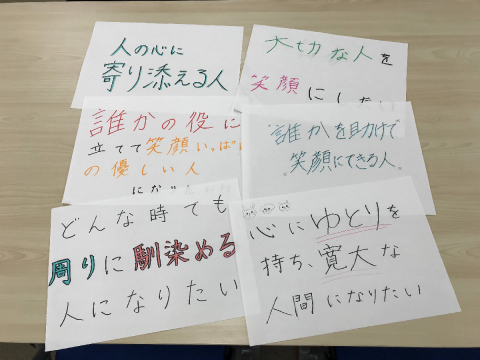 人の心に
寄り添える人
大切な人を
笑顔にしたい
誰かの役に
立てて笑顔いっぱい
の優しい人
誰かを助けて
笑顔にできる人。
どんな時でも
周りに馴染める
人になりたい
心にゆとりを
持ち、寛大な
人間になりたい